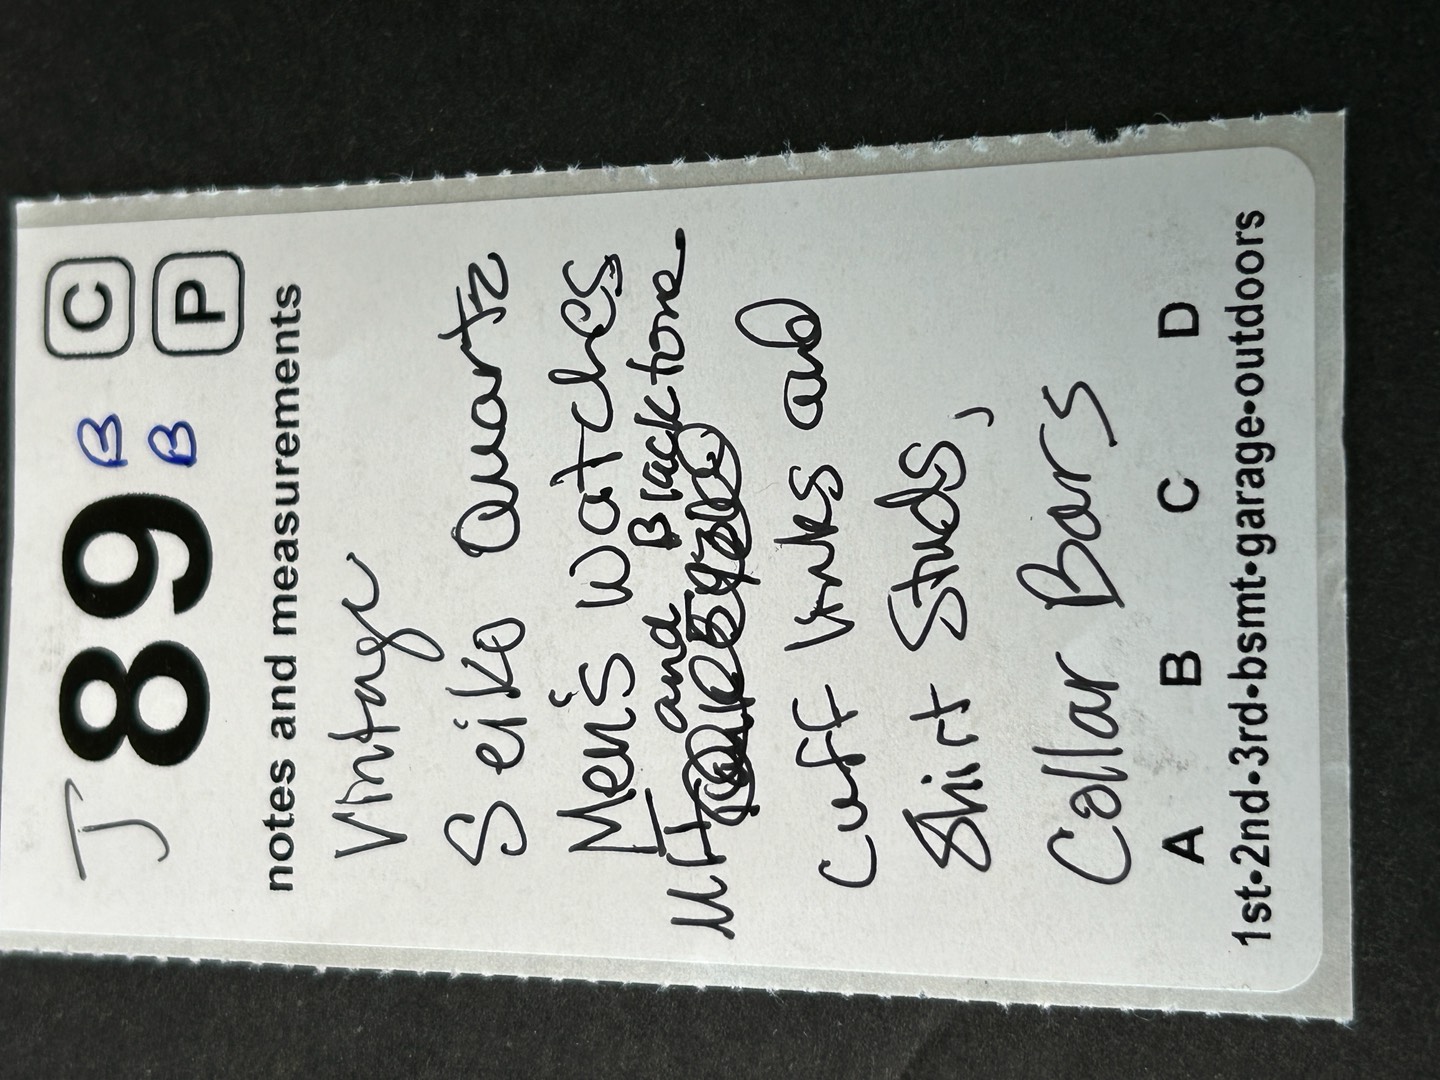 J 89 B C
B P
notes and measurements
Vintage
Seiko Quartz
Men's Watches
and Black tone
Cuff links and
Shirt Studs,
Collar Bars
A B C D
1st•2nd•3rd•bsmt•garage•outdoors